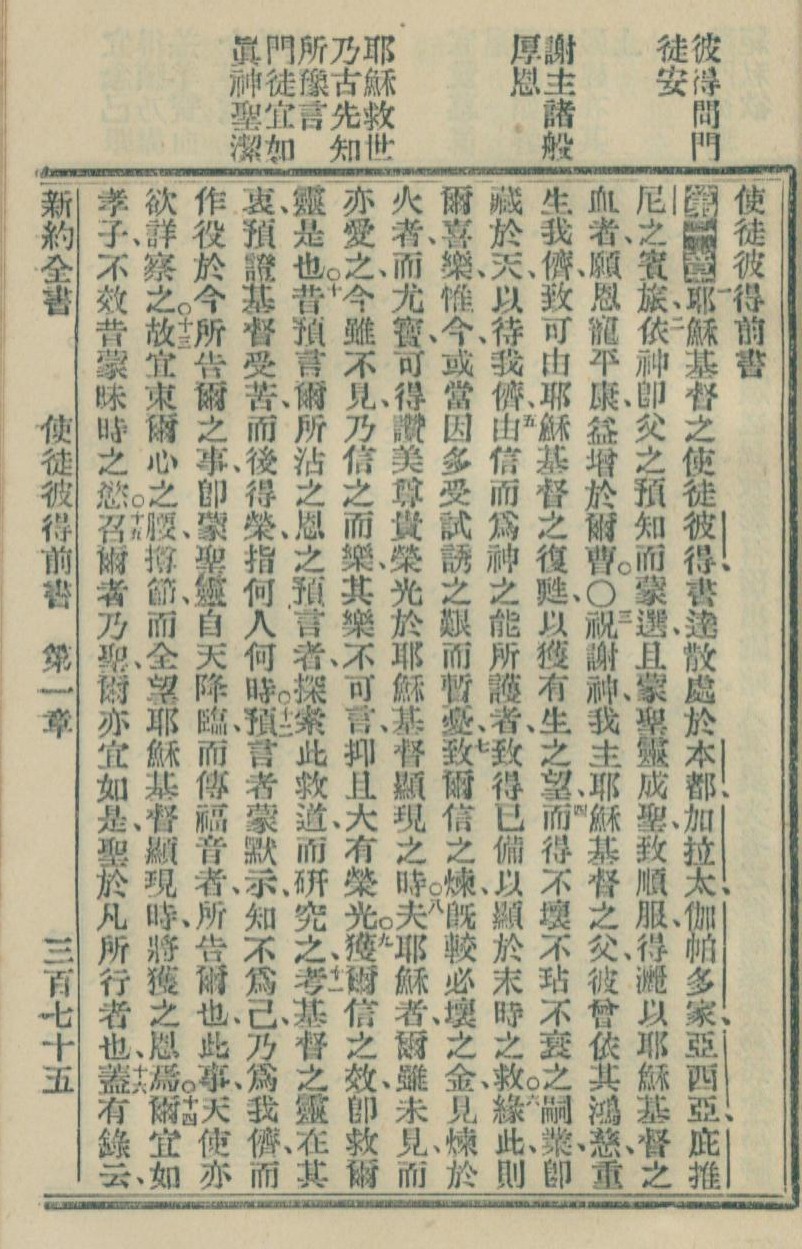 彼得問門
徒安
謝主諸般
厚恩
耶穌救世
乃古先知
所豫言
門徒宜如
眞神聖潔
使徒彼得前書
第一章一耶穌基督之使徒彼得、書達散處於本都、加拉太、伽帕多家、亞西亞、庇推
尼之賓旅、二依神卽父之預知而蒙選、且蒙聖靈成聖、致順服、得灑以耶穌基督之
血者、願恩寵平康、益增於爾曹。〇三祝謝神、我主耶穌基督之父、彼曾依其鴻慈、重
生我儕、致可由耶穌基督之復甦、以獲有生之望、四而得不壞不玷不衰之嗣業、卽
藏於天、以待我儕、五由信而爲神之能所護者、致得已備以顯於末時之救。六緣此、則
爾喜樂、惟今或當因多受試誘之艱而暫憂、七致爾信之煉、旣較必壞之金、見煉於
火者、而尤寶、可得讚美尊貴榮光於耶穌基督顯現之時。八夫耶穌者、爾雖未見、而
亦愛之、今雖不見、乃信之而樂、其樂不可言、抑且大有榮光。九獲爾信之效、卽救爾
靈是也。十昔預言爾所沾之恩之預言者、探索此救道、而研究之、十一考基督之靈在其
衷、預證基督受苦、而後得榮、指何人何時。十二預言者蒙默示、知不爲己、乃爲我儕、而
作役於今所告爾之事、卽蒙聖靈自天降臨、而傳福音者、所告爾也、此事、天使亦
欲詳察之。十三故宜束爾心之腰、撙節、而全望耶穌基督顯現時、將獲之恩焉。十四爾宜如
孝子、不效昔蒙昧時之慾。十五召爾者乃聖、爾亦宜如是、聖於凡所行者也、十六蓋有錄云、
新約全書 使徒彼得前書 第一章 三百七十五